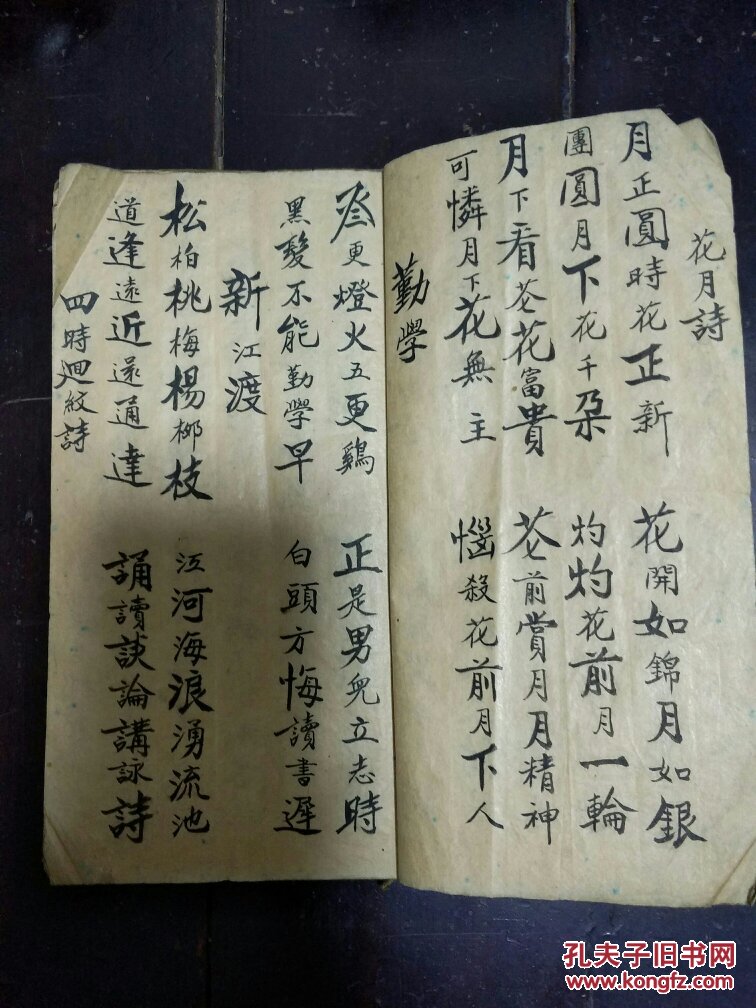 花月詩
月正圓時花正新 花開如錦月如銀
團圓月下花千朵 灼灼花前月一輪
月下看芲花富貴 芲前賞月月精神
可憐月下花無主 惱殺花前月下人
勤學
叁更燈火五更鷄 正是男兒立志時
黑髮不能勤學早 白頭方悔讀書遲
新江渡
松柏桃梅楊栁枝 江河海浪湧流池
道逢遠近還通達 誦讀談論講詠詩
四時迴紋詩
孔夫子旧书网
www.kongfz.com